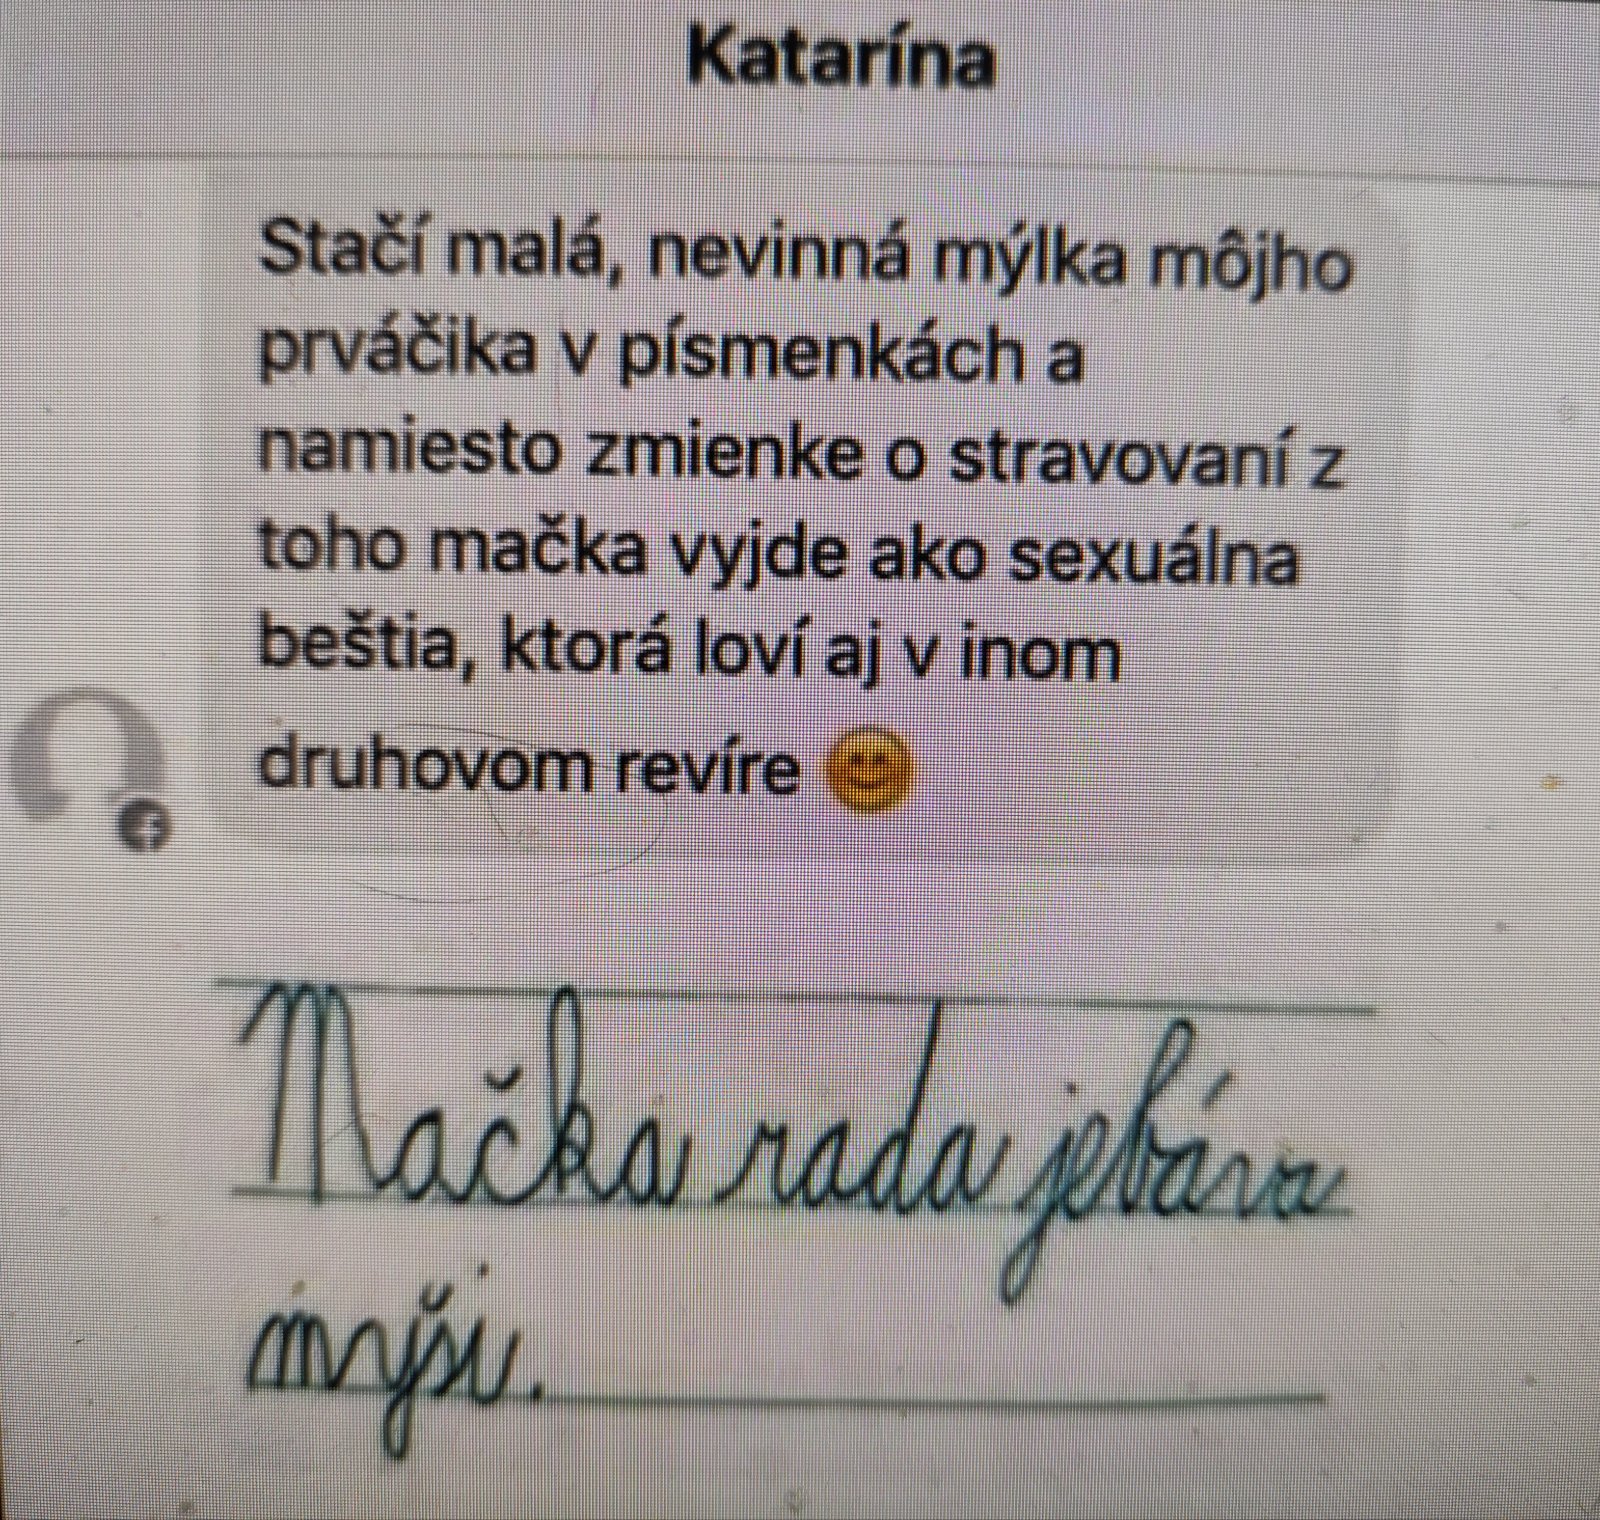 Katarína
Stačí malá, nevinná mýlka môjho
prváčika v písmenkách a
namiesto zmienke o stravovaní z
toho mačka vyjde ako sexuálna
beštia, ktorá loví aj v inom
druhovom revíre 😊
Mačka rada jebáva
myši.